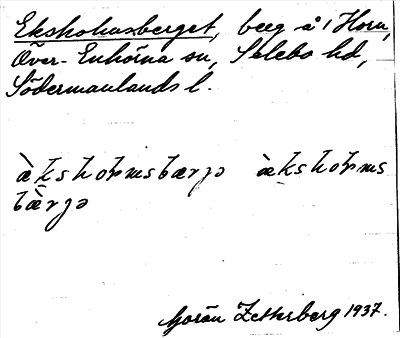 Eksholmsberget, berg å Horn,
Över-Enhörna sn, Selebo hd,
Södermanlands l.
ὰksholmsbærjə ὰksholms
bὰrjə
Göran Zetterberg 1937.